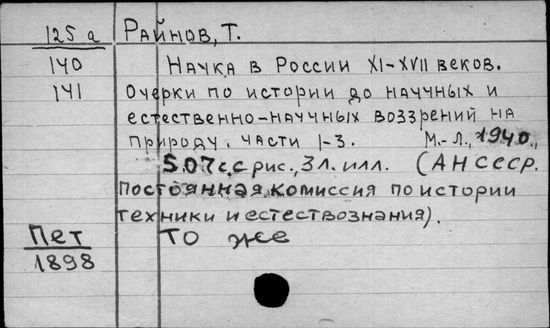 125а Райнов, Т.
140 Наука в России XI-XVII веков.
141 Очерки по истории до научных и
естественно-научных воззрений на
природу. части 1-3. М.-Л., 1940.,
507с. с рис., 3л. илл. (АН СССР.
Постоянная комиссия по истории
техники и естествознания).
Пет то же
1898